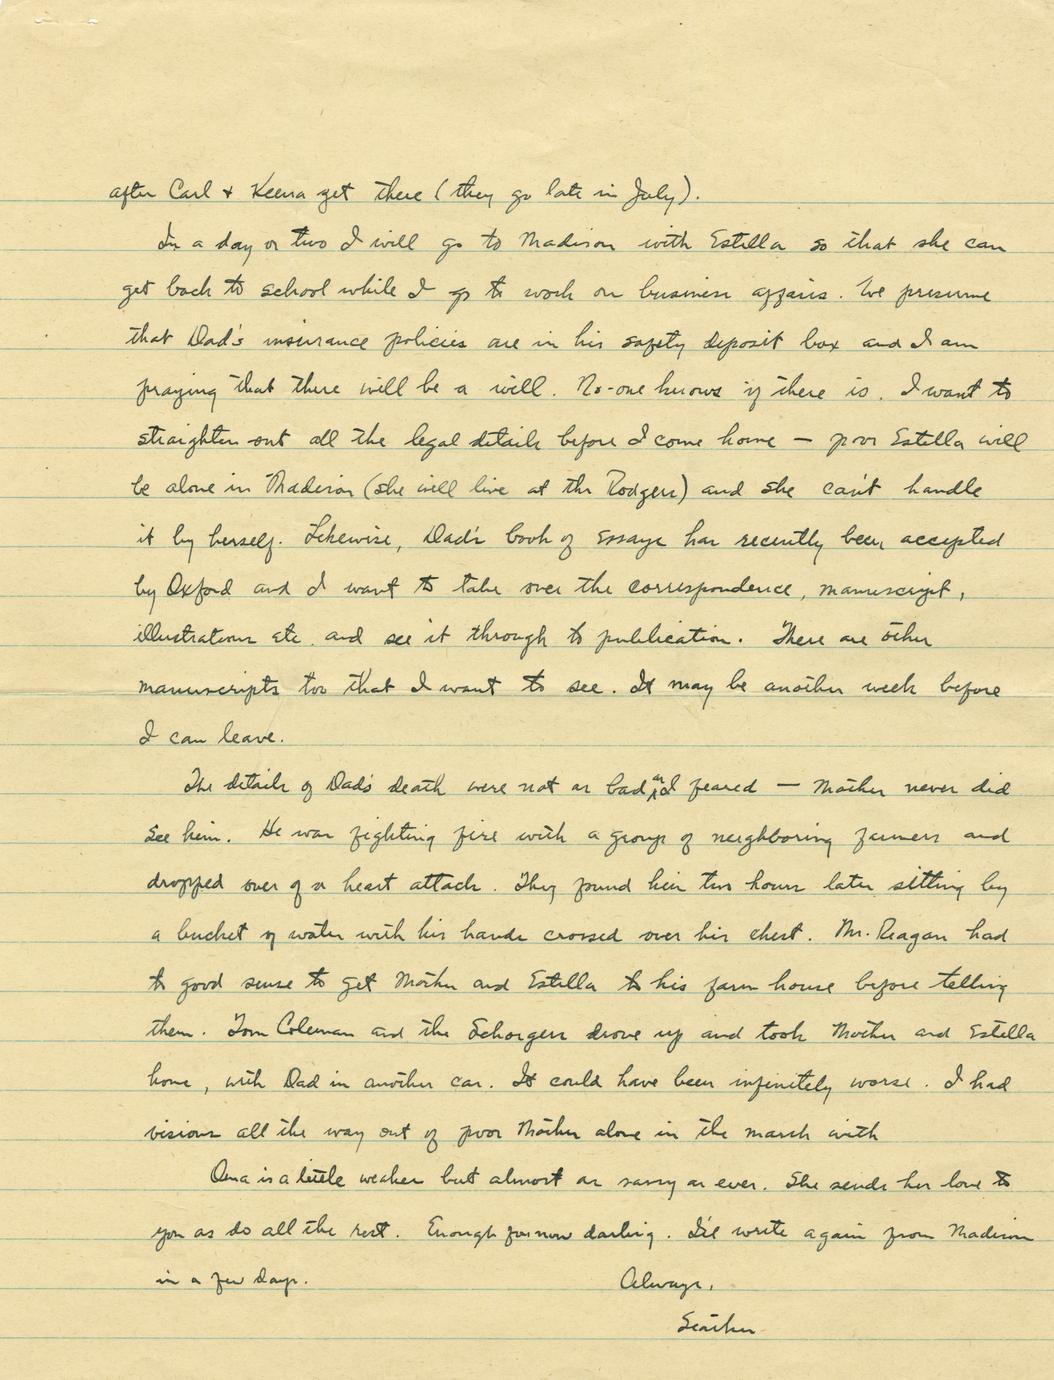 after Carl & Keena get there (they go late in July).
In a day or two I will go to Madison with Estella so that she can
get back to school while I go to work on business affairs. We presume
that Dad's insurance policies are in his safety deposit box and I am
praying that there will be a will. No-one knows if there is. I want to
straighten out all the legal details before I come home — poor Estella will
be alone in Madison (she will live at the Rodgers) and she can't handle
it by herself. Likewise, Dad's book of Essays has recently been accepted
by Oxford and I want to take over the correspondence, manuscript,
illustrations etc. and see it through to publication. There are other
manuscripts too that I want to see. It may be another week before
I can leave.
The details of Dad's death were not as bad as I feared — Mother never did
see him. He was fighting fire with a group of neighboring farmers and
dropped over of a heart attack. They found him two hours later sitting by
a bucket of water with his hands crossed over his chest. Mr. Reagan had
to good sense to get Mother and Estella to his farm house before telling
them. Tom Coleman and the Schorgers drove up and took Mother and Estella
home, with Dad in another car. It could have been infinitely worse. I had
visions all the way out of poor Mother alone in the marsh with
Oma is a little weaker but almost as sassy as ever. She sends her love to
you as do all the rest. Enough for now darling. I'll write again from Madison
in a few days.
Always,
Starker